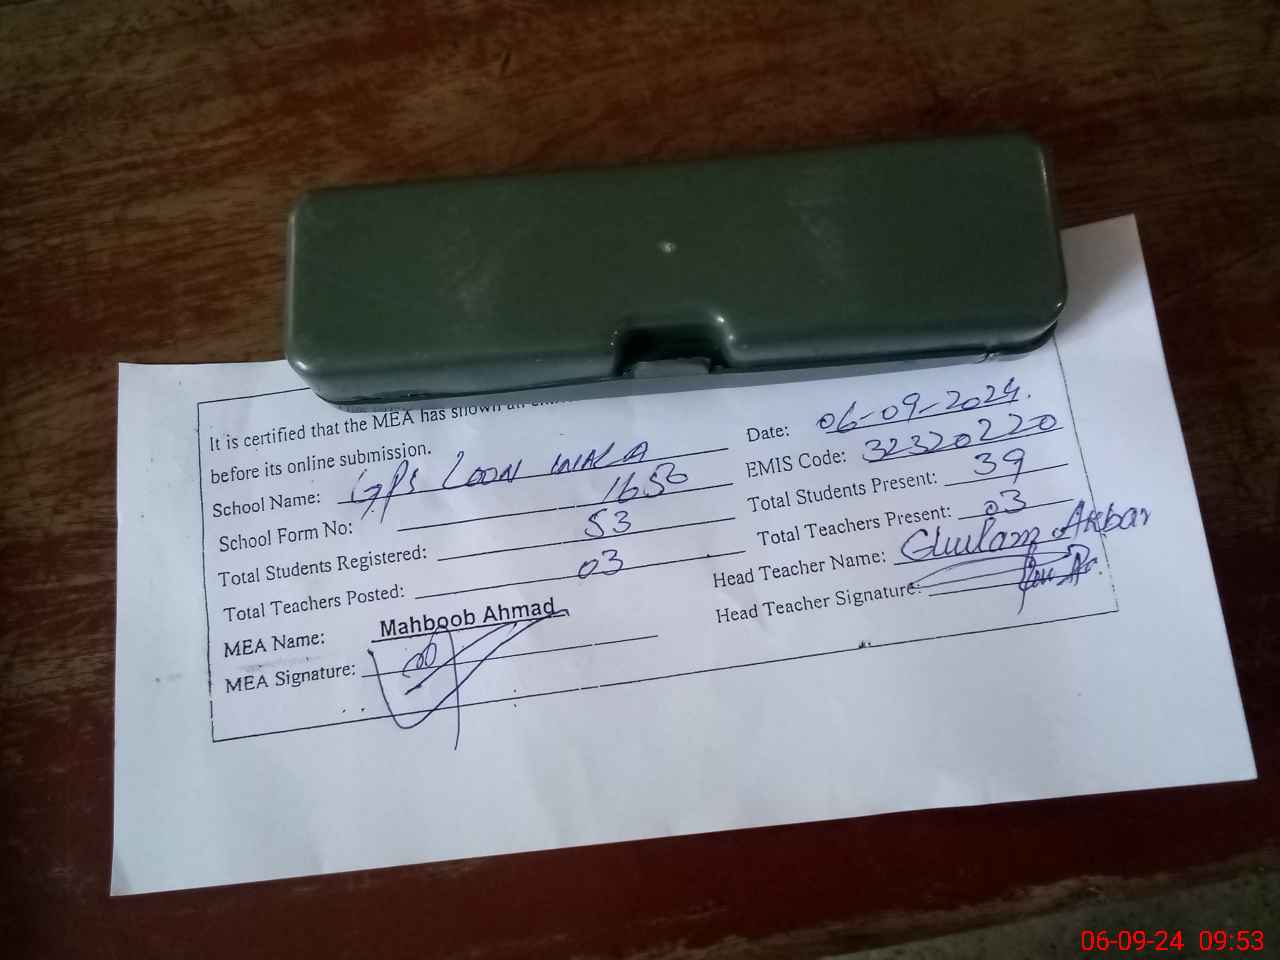 It is certified that the MEA has shown an
before its online submission.
Date: 06-09-2024.
School Name: GPS LOON WALA
EMIS Code: 32320220
School Form No: 1650
Total Students Present: 39
Total Students Registered: 53
Total Teachers Present: 03
Total Teachers Posted: 03
Head Teacher Name: Ghulam Akbar
MEA Name: Mahboob Ahmad
Head Teacher Signature:
MEA Signature:
06-09-24 09:53